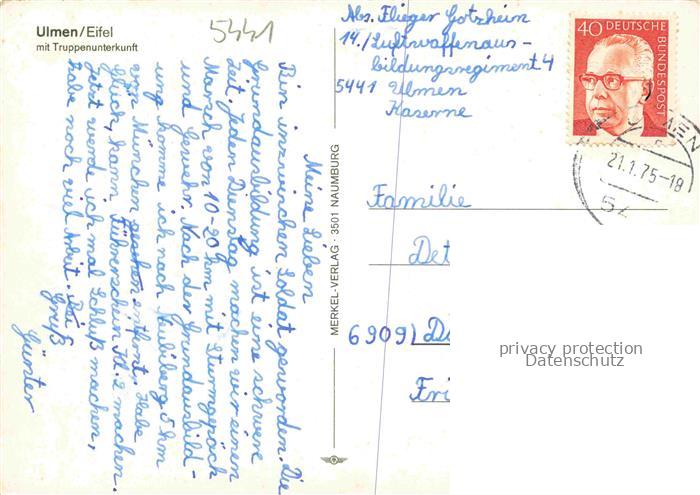 Ulmen/Eifel
mit Truppenunterkunft
5441
Meine Lieben
Bin inzwischen Soldat geworden. Die
Grundausbildung ist eine schwere
Zeit. Jeden Dienstag machen wir einen
Marsch von 10-20 km mit Sturmgepäck
und Gewehr. Nach der Grundausbild-
ung komme ich nach Neubiberg 5 km
von München entfernt. Habe
Glück, kann Führerschein Kl. 2 machen.
Jetzt werde ich mal Schluß machen,
habe noch viel Arbeit.
Gruß
Günter
MERKEL-VERLAG · 3501 NAUMBURG
Abs. Flieger Gotzhein
14./Luftwaffenaus-
bildungsregiment 4
5441 Ulmen
Kaserne
40 DEUTSCHE
BUNDESPOST
ULMEN
21.1.75-18
54
Familie
Det
6909) Di
Fri
privacy protection
Datenschutz